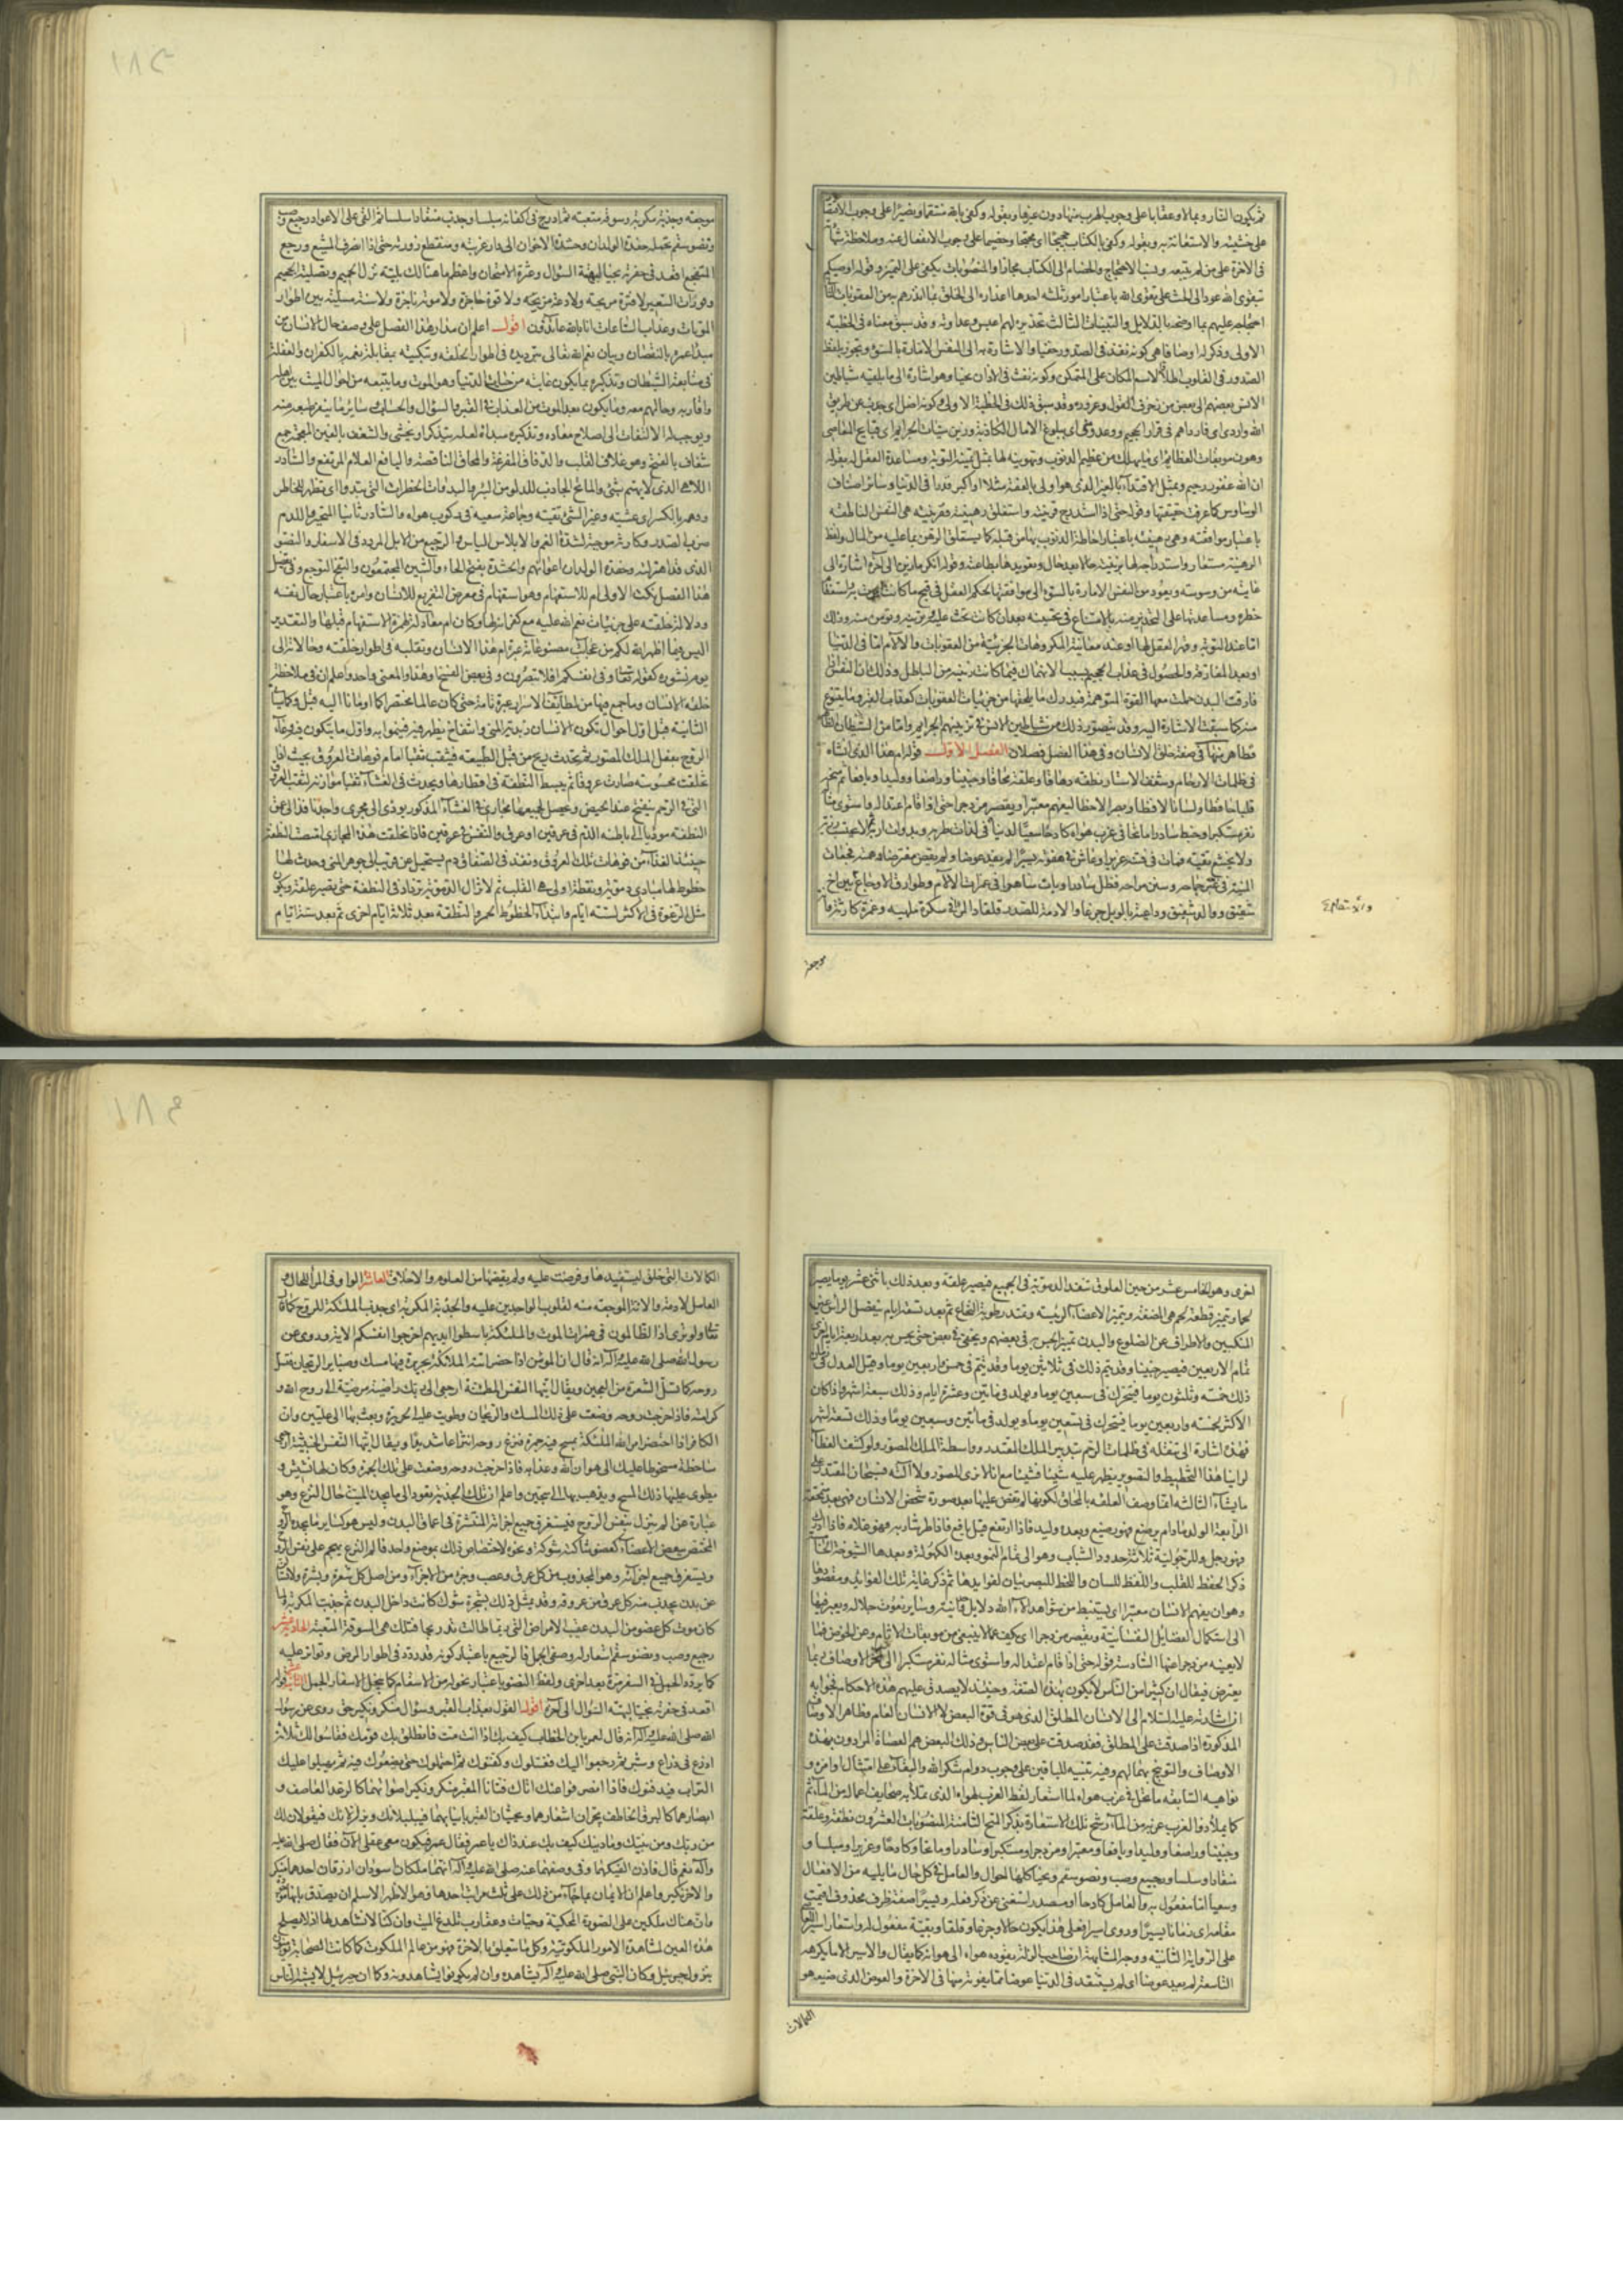 ثم يكون النار وبالا وعقابا على وجوب الهرب منها دون غيرها وبقوله وكفى بالله منتقما ونصيرا على وجوب الاقتصار
على خشيته والاستعانة به وبقوله وكفى بالكتاب حجيجا اى محتجا وخصيما على وجوب الانفعال عنه وملاحظة شهادته
فى الآخرة على من لم يتبعه ونسب الاحتجاج والخصام الى الكتاب مجازا والمنصوبات بكفى على التمييز وقوله اوصيكم
بتقوى الله عود الى الحث على تقوى الله باعتبار امور ثلثه احدها اعذاره الى الخلق بما انذرهم به من العقوبات الثانى
احتجاجه عليهم بما اوضحه بالدلايل والبينات الثالث تحذيره لهم ابليس وعداوته وقد سبق معناه فى الخطبة
الاولى وذكر له اوصافا هى كونه نفذ فى الصدور خفيا والاشارة به الى النفس الامارة بالسوء وتجوز بلفظ
الصدور فى القلوب اطلاقا لاسم المكان على المتمكن وكونه نفث فى الاذان نجيا وهو اشارة الى ما يلقيه شياطين
الانس بعضهم الى بعض من زخرف القول وغروره وقد سبق ذلك فى الخطبة الاولى وكونه اضل اى جذب عن طريق
الله واردى اى فارداهم فى قرار الجحيم ووعد ومنى اى ببلوغ الآمال الكاذبة وزين سيئات الجرايم اى قبايح المعاصى
وهون موبقات العظايم اى ما يهلك من عظيم الذنوب وتهوينه لها بمثل تمنيه التوبة ومساعدة العقل له بقوله
ان الله غفور رحيم وبمثل الاقتداء بالغير الذى هو اولى بالعفة مثلا او اكبر قدرا فى الدنيا وسائر اصناف
الوساوس كما عرفت حقيقتها وقوله حتى اذا استدرج قرينته واستغلق رهينته وقرينته هى النفس الناطقة
باعتبار موافقته وهى رهينته باعتبار احاطة الذنوب بها من قبله كما يستغلق الرهن بما عليه من المال ولفظ
الرهينة مستعار واستدراجه لها تزيينه حالا بعد حال وتعويدها بطاعته وقوله انكر ما زين الى آخره اشارة الى
غايته من وسوسته ويعود من النفس الامارة بالسوء الى موافقتها لحكم العقل فى قبح ما كانت امرت به واستعظام
خطره ومساعدتها على التحذير منه بالامتناع فى تحسينه بعد ان كانت تحث عليه وتزينه وتومن منه وذلك
اما عند التوبة وقهر العقل لها او عند معاينة المكروهات الجزئية من العقوبات والآلام اما فى الدنيا
او بعد المفارقة والحصول فى عذاب الجحيم بسبب الانهماك فيما كانت زينته من الباطل وذلك ان النفس اذا
فارقت البدن حملت معها القوة المتوهمة فيدرك ما يلحقها من جزئيات العقوبات كعقاب القبر وما يتنوع
منه كما سبقت الاشارة اليه وقد يتصور ذلك من شياطين الانس فى تزيينهم الجرايم واما من الشيطان الظاهر
فظاهر منها فى صفة خلق الانسان وفى هذا الفصل فصلان الفصل الاول قوله ام هذا الذى انشاه
فى ظلمات الارحام وشغف الاستار نطفة دهاقا وعلقة محاقا وجنينا وراضعا ووليدا ويافعا ثم منحه
قلبا حافظا ولسانا لافظا وبصرا لاحظا ليفهم معتبرا ويقصر مزدجرا حتى اذا قام اعتداله واستوى مثاله
نفر مستكبرا وخبط سادرا ماتحا فى غرب هواه كادحا سعيا لدنياه فى لذات طربه وبدوات اربه لا يحتسب رزية
ولا يخشع تقية فمات فى فتنته غريرا وعاش فى هفوته يسيرا لم يفد عوضا ولم يقض مفترضا دهمته فجعات
المنية فى غبر جماحه وسنن مراحه فظل سادرا وبات ساهرا فى غمرات الآلام وطوارق الاوجاع بين اخ
شقيق ووالد شفيق وداعية بالويل جزعا ولادمة للصدر قلقا والمرء فى سكرة ملهية وغمرة كارثة وانة
موجعة
والاستعظام ع
١٨٣
موجعة وجذبة مكربة وسوقة متعبة ثم ادرج فى اكفانه مبلسا وجذب منقادا سلسا ثم القى على الاعواد رجيع وصب
ونضو سقم تحمله حفدة الولدان وحشدة الاخوان الى دار غربته ومنقطع زورته حتى اذا انصرف المشيع ورجع
المتفجع اقعد فى حفرته نجيا لبهتة السؤال وعثرة الامتحان واعظم ما هنالك بلية نزل الحميم وتصلية الجحيم
وفورات السعير لا فترة مريحة ولا دعة مزيحة ولا قوة حاجزة ولا موتة ناجزة ولا سنة مسلية بين اطوار
الموتات وعذاب الساعات انا بالله عائذون اقول اعلم ان مدار هذا الفصل على وصف حال الانسان من
مبدأ عمره بالنقصان وبيان نعم الله تعالى بترديده فى اطوار الخلقة وتبكيته بمقابلة نعمه بالكفران والغفلة
فى متابعة الشيطان وتذكيره بما يكون غايته من حيات الدنيا وهو الموت وما يتبعه من احوال الميت بين اهله
واقاربه وحالهم معه وما يكون بعد الموت من العذاب فى القبر والسؤال والحساب وسائر ما ينفر طبعه منه
ويوجب له الالتفات الى اصلاح معاده وتذكيره مبدأه لعله يتذكر او يخشى والشغف بالغين المعجمة جمع
شغاف بالفتح وهو غلاف القلب والدهاق المفرغة والمحاق الناقصة واليافع الغلام المرتفع والسادر
اللاهى الذى لا يهتم بشئ والماتح الجاذب للدلو من البئر والبدوات الخطرات التى تبدو اى تظهر للخاطر
ودهمه بالكسر اى غشيه وغبر الشئ بقيته وجماحه سعيه فى ركوب هواه والسادر ثانيا المتحير واللدم
ضرب الصدر وكارثة موجبة لشدة الغم والابلاس الياس والرجيع من الابل المردد فى الاسفار والنضو
الذى قد اهزلته وحفدة الولدان اعوانهم والحشدة بفتح الحاء والشين المجتمعون والتفجع التوجع وفى
هذا الفصل نكت الاولى ام للاستفهام وهو استفهام فى معرض التقريع للانسان وامره باعتبار حال نفسه
ودلالة خلقته على جزئيات نعم الله عليه مع كفرانه لها وكان ام معادلة لهمزة الاستفهام قبلها والتقدير
اليس فيما اظهره الله لكم من عجائب مصنوعاته عبرة ام هذا الانسان وتقلبه فى اطوار خلقته وحالاته الى
يوم نشوره كقوله تعالى وفى انفسكم افلا تبصرون وفى بعض النسخ وهذا والمعنى واحد واعلم ان فى ملاحظة
خلقة الانسان وما جمع فيها من لطائف الاسرار عبرة تامة حتى كان عالما مختصرا كما اومأنا اليه قبل وكما
الثانية قيل اول احوال تكون الانسان زبدية المنى وانتفاخ يظهر فيه فينمو به واول ما يتكون فيه وعاء
الروح بفعل الملك المصور ثم يحدث ريح من قبل الطبيعة فيثقب ثقبا امام فوهات العروق بحيث اذا
تخلقت محسوسة صارت عروقا ثم يبسط النطفة فى اقطارها ويحدث فى الغشاء ثقبا موازية لثقب العروق
التى فى الرحم ينفتح عند الحيض ويحصل لجميعها مجارى فى الغشاء المذكور يودى الى مجرى واحد نافذ الى عمق
النطفة مؤديا الى باطنه الدم فى عرقين او عرق والنفس فى عرقين فاذا تخلقت هذه المجارى امتصت النطفة
حينئذ الغذاء من فوهات تلك العروق ونفذ فى الصفاق دم يستحيل عن قريب الى جوهر المنى وحدث لها
خطوط لها مبادى دموية ونقطة اولى هى القلب ثم لا تزال الدموية تزداد فى النطفة حتى يصير علقة ويكون
مثل الرغوة فى الاكثر لستة ايام وابتداء الخطوط الحمر والنقطة بعد ثلاثة ايام اخرى ثم بعد ستة ايام
اخرى وهو الخامس عشر من حين العلوق تنفذ الدموية فى الجميع فيصير علقة وبعد ذلك باثنى عشر يوما يصير
لحما ويتميز قطعة لحم هى المضغة ويتميز الاعضاء الرئيسة ويمتد رطوبة النخاع ثم بعد تسعة ايام ينفصل الرأس عن
المنكبين والاطراف عن الضلوع والبدن تميز الحس فى بعضهم ويخفى فى بعض حتى يحس به بعد اربعة ايام اخرى
تمام الاربعين فيصير جنينا وقد يتم ذلك فى ثلاثين يوما وقد يتم فى خمس واربعين يوما وقيل العدل فى
ذلك خمسة وثلثون يوما فيتحرك فى سبعين يوما ويولد فى مايتين وعشرة ايام وذلك سبعة اشهر واذا كان
الاكثر لخمسة واربعين يوما فيتحرك فى تسعين يوما ويولد فى مأتين وسبعين يوما وذلك تسعة اشهر
فهذه اشارة الى تنقله فى ظلمات الرحم بتدبير الملك المقتدر وواسطة الملك المصور ولو كشف الغطاء
لرأينا هذا التخطيط والتصوير يظهر عليه شيئا فشيئا مع انا لا نرى المصور ولا آلته فسبحان المقتدر على
ما يشاء الثالثة انما وصف العلقة بالمحاق لكونها لم تفض عليها بعد صورة شخص الانسان فهى بعد ممحقة
الرابعة الولد ما دام يرضع فهو رضيع وبعده وليد فاذا ارتفع قيل يافع فاذا طر شاربه فهو غلام فاذا ادرك
فهو رجل وللرجولية ثلاثة حدود الشباب وهو الى تمام النمو وبعده الكهولة وبعدها الشيوخة الخامسة
ذكر الحفظ للقلب واللفظ للسان واللحظ للبصر بيان لفوايدها ثم ذكر غاية تلك الفوايد ومقصودها
وهو ان يفهم الانسان معتبرا اى يستنبط من شواهد آلاء الله دلايل وحدانيته وساير نعوت جلاله ويعبر فيها
الى استكمال الفضائل النفسانية ويقصر مزدجرا اى يكف عما لا ينبغى من موبقات الآثام وعن الخوض فيما
لا يعنيه مزدجرا عنها السادسة قوله حتى اذا قام اعتداله واستوى مثاله نفر مستكبرا الى آخر الاوصاف ربما
يعترض فيقال ان كثيرا من الناس لا يكون بهذه الصفة وحينئذ لا يصدق عليهم هذه الاحكام فجوابه
ان اشارته عليه السلام الى الانسان المطلق الذى هو فى قوة البعض لا الانسان العام وظاهر الاوصاف
المذكورة اذا صدقت على المطلق فقد صدقت على بعض الناس وذلك البعض هم العصاة المرادون بهذه
الاوصاف والتوبيخ بها لهم وفيه تنبيه للباقين على وجوب دوام شكر الله والبقاء على امتثال اوامره و
نواهيه السابعة ماتحا فى غرب هواه لما استعار لفظ الغرب لهواه الذى يملأ به صحايف اعماله من المآثم
كما يملأ ذو الغرب غربه من الماء رشح تلك الاستعارة بذكر المتح الثامنة المنصوبات العشرون نطفة وعلقة
وجنينا وراضعا ووليدا ويافعا ومعتبرا ومزدجرا ومستكبرا وسادرا وماتحا وكادحا وغريرا ومبلسا و
منقادا وسلسا ورجيع وصب ونضو سقم ونجيا كلها احوال والعامل فى كل حال ما يليه من الافعال
وسعيا اما مفعول به والعامل كادحا او مصدر استغنى عن ذكر فعله ويسيرا صفة ظرف محذوف اقيمت
مقامه اى زمانا يسيرا وروى اسيرا فعلى هذا يكون حالا وجزعا وقلقا وتقية مفعول له واستعار اسيرا
على الرواية الثانية ووجه المشابهة ان صاحب الزلة يقوده هواه الى هوانه كما يقال والاسير الى ما يكرهه
التاسعة لم يفد عوضا اى لم يستفد فى الدنيا عوضا مما يفوته منها فى الآخرة والعوض الذى ضيعه هو
الكمالات
١٨٤
الكمالات التى خلق ليستفيدها وفرضت عليه ولم يقضها من العلوم والاخلاق العاشر الواو فى المرء للحال و
العامل لادمة والانة الموجعة منه لقلوب الواجدين عليه والجذبة المكربة اى جذب الملئكة للروح كما قال
تعالى ولو ترى اذ الظالمون فى غمرات الموت والملئكة باسطوا ايديهم اخرجوا انفسكم الآية وروى عن
رسول الله صلى الله عليه وآله انه قال ان المؤمن اذا حضر اتته الملائكة بحريرة فيها مسك وضبائر الريحان فتسل
روحه كما تسل الشعرة من العجين ويقال يا ايتها النفس المطمئنة ارجعى الى ربك راضية مرضية الى روح الله و
كرامته فاذا خرجت روحه وضعت على ذلك المسك والريحان وطويت عليه الحريرة وبعث بها الى عليين وان
الكافر اذا احتضر امر الله الملئكة بمسح فيه جمرة فتنزع روحه انتزاعا شديدا ويقال ايتها النفس الخبيثة اخرجى
ساخطة مسخوطا عليك الى هوان الله وعذابه فاذا خرجت روحه وضعت على تلك الجمرة وكان لها نشيش و
يطوى عليها ذلك المسح ويذهب بها الى سجين واعلم ان تلك الجذبة يعود الى ما يجده الميت حال النزع وهو
عبارة عن الم ينزل بنفس الروح فيستغرق جميع اجزائه المنتشرة فى اعماق البدن وليس هو كساير ما يجده الروح
المختص ببعض الاعضاء كعضو شاكته شوكة ونحوه لاختصاص ذلك بموضع واحد فالم النزع يهجم على نفس الروح
ويستغرق جميع اجزائه وهو المجذوب من كل عرق وعصب وجزء من الاجزاء ومن اصل كل شعرة وبشرة ولا تسأل
عن بدن يجذب منه كل عرق من عروقه وقد يمثل ذلك بشجرة شوك كانت داخل البدن ثم جذبت المكربة ولما
كان موت كل عضو من البدن عقيب الامراض التى ربما طالت تدريجا فتلك هى السوقة المتعبة الحادية عشر
رجيع وصب ونضو سقم استعار له وصفى الجمل فالرجيع باعتبار كونه قد ردد فى اطوار المرض وتواتر عليه
كما يردد الجمل فى السفر مرة بعد اخرى ولفظ النضو باعتبار نحوله من الاسقام كما ينحل الاسفار الجمل الثانية عشر قوله
اقعد فى حفرته نجيا لبهتة السؤال الى آخره اقول القول بعذاب القبر وسؤال منكر ونكير حق روى عن رسول
الله صلى الله عليه وآله انه قال لعمر يا ابن الخطاب كيف بك اذا انت مت فانطلق بك قومك فقاسوا لك ثلاثة
اذرع فى ذراع وشبر ثم رجعوا اليك فغسلوك وكفنوك ثم احتملوك حتى يضعوك فيه ثم يهيلوا عليك
التراب فيدفنوك فاذا انصرفوا عنك اتاك فتانا القبر منكر ونكير اصواتهما كالرعد القاصف و
ابصارهما كالبرق الخاطف يجران اشعارهما ويحثيان القبر بانيابهما فيبلبلانك ويزلزلانك فيقولان لك
من ربك ومن نبيك وما دينك كيف بك عند ذلك يا عمر فقال عمر فيكون معى عقلى الآن فقال صلى الله عليه
وآله نعم قال فاذن اكفيكهما وفى وصفهما عنه صلى الله عليه وآله انهما ملكان اسودان ازرقان احدهما منكر
والآخر نكير واعلم ان الايمان بما جاء من ذلك على ثلث مراتب احدها وهو الاظهر الاسلم ان يصدق بانها موجودة
وان هناك ملكين على الصورة المحكية وحيات وعقارب تلدغ الميت وان كنا لا نشاهد لها اذ لا يصلح
هذه العين لمشاهدة الامور الملكوتية وكل ما يتعلق بالآخرة فهو من عالم الملكوت كما كانت الصحابة يؤمنون
بنزول جبرئيل وكان النبى صلى الله عليه وآله يشاهده وان لم يكونوا يشاهدونه وكما ان جبرئيل لا يشبه الناس